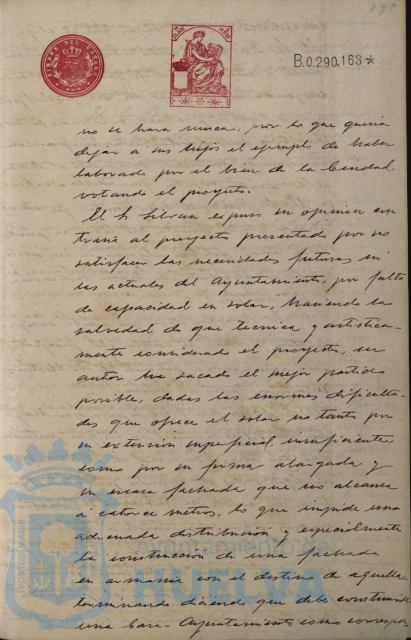 B.0.290,163*
no se hará nunca, por lo que quería
dejar a sus hijos el ejemplo de haber
laborado por el bien de la Ciudad
votando el proyecto.
El Sr. Silvan expuso su opinión con
traria al proyecto presentado por no
satisfacer las necesidades futuras ni
las actuales del Ayuntamiento, por falta
de capacidad en solar, haciendo la
salvedad de que tecnica y artistica-
mente considerado el proyecto, su
autor ha sacado el mejor partido
posible, dadas las enormes dificulta-
des que ofrece el solar no tanto por
su extensión superficial, insuficiente,
como por su forma alargada y
su escasa fachada que no alcanza
a catorce metros, lo que impide una
adecuada distribución y especialmente
la construcción de una fachada
en armonía con el destino de aquella,
terminando diciendo que debe construirse
una Casa-Ayuntamiento como correspon-
HUELVA